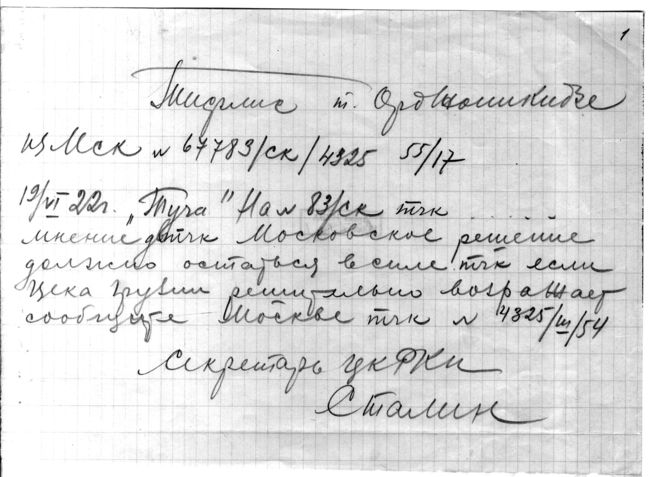 1
Тифлис т. Орджоникидзе
из Мск № 67783/ск/4325 55/17
19/VI 22г. „Туча" На № 83/ск тчк
мнение тчк Московское решение
должно остаться в силе тчк если
Цека Грузии решительно возражает
сообщите Москве тчк № 4325/III/54
Секретарь ЦКРКП
Сталин